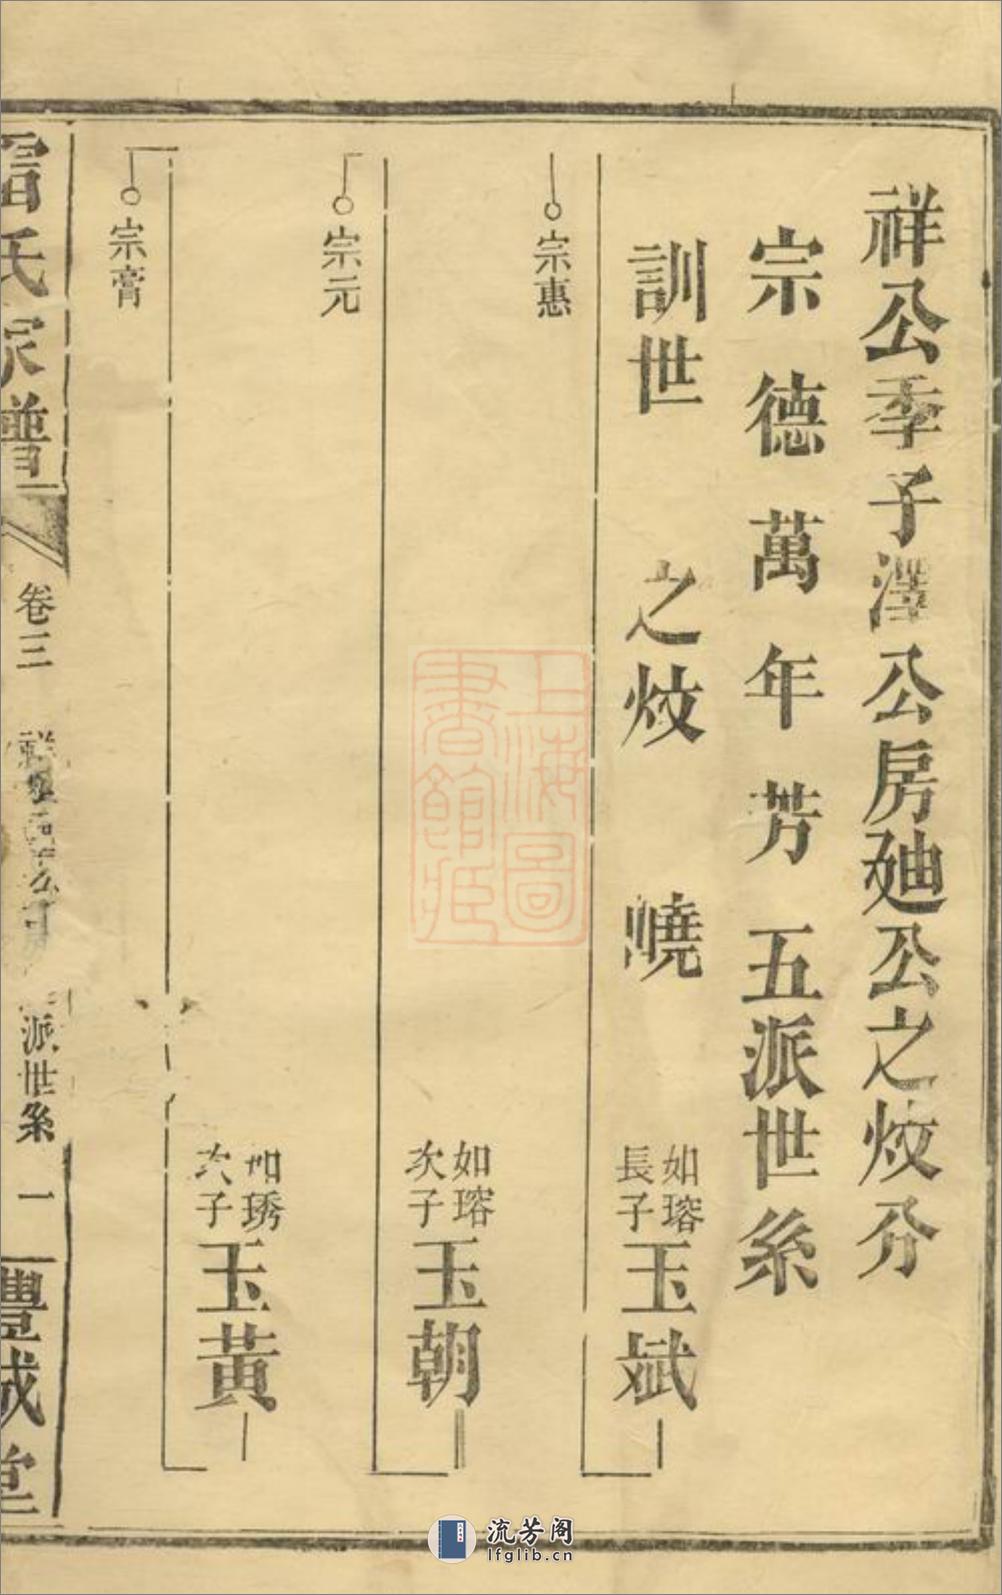 祥公季子澤公房廸公之炆分
宗德萬年芳五派世系
訓世 之炆 嶢
如瑢長子玉斌
宗惠
如瑢次子玉朝
宗元
如琇次子玉黃
宗膏
雷氏家譜 卷三 派世系 一 豐城堂
上海圖書館藏
流芳阁
lfglib.cn